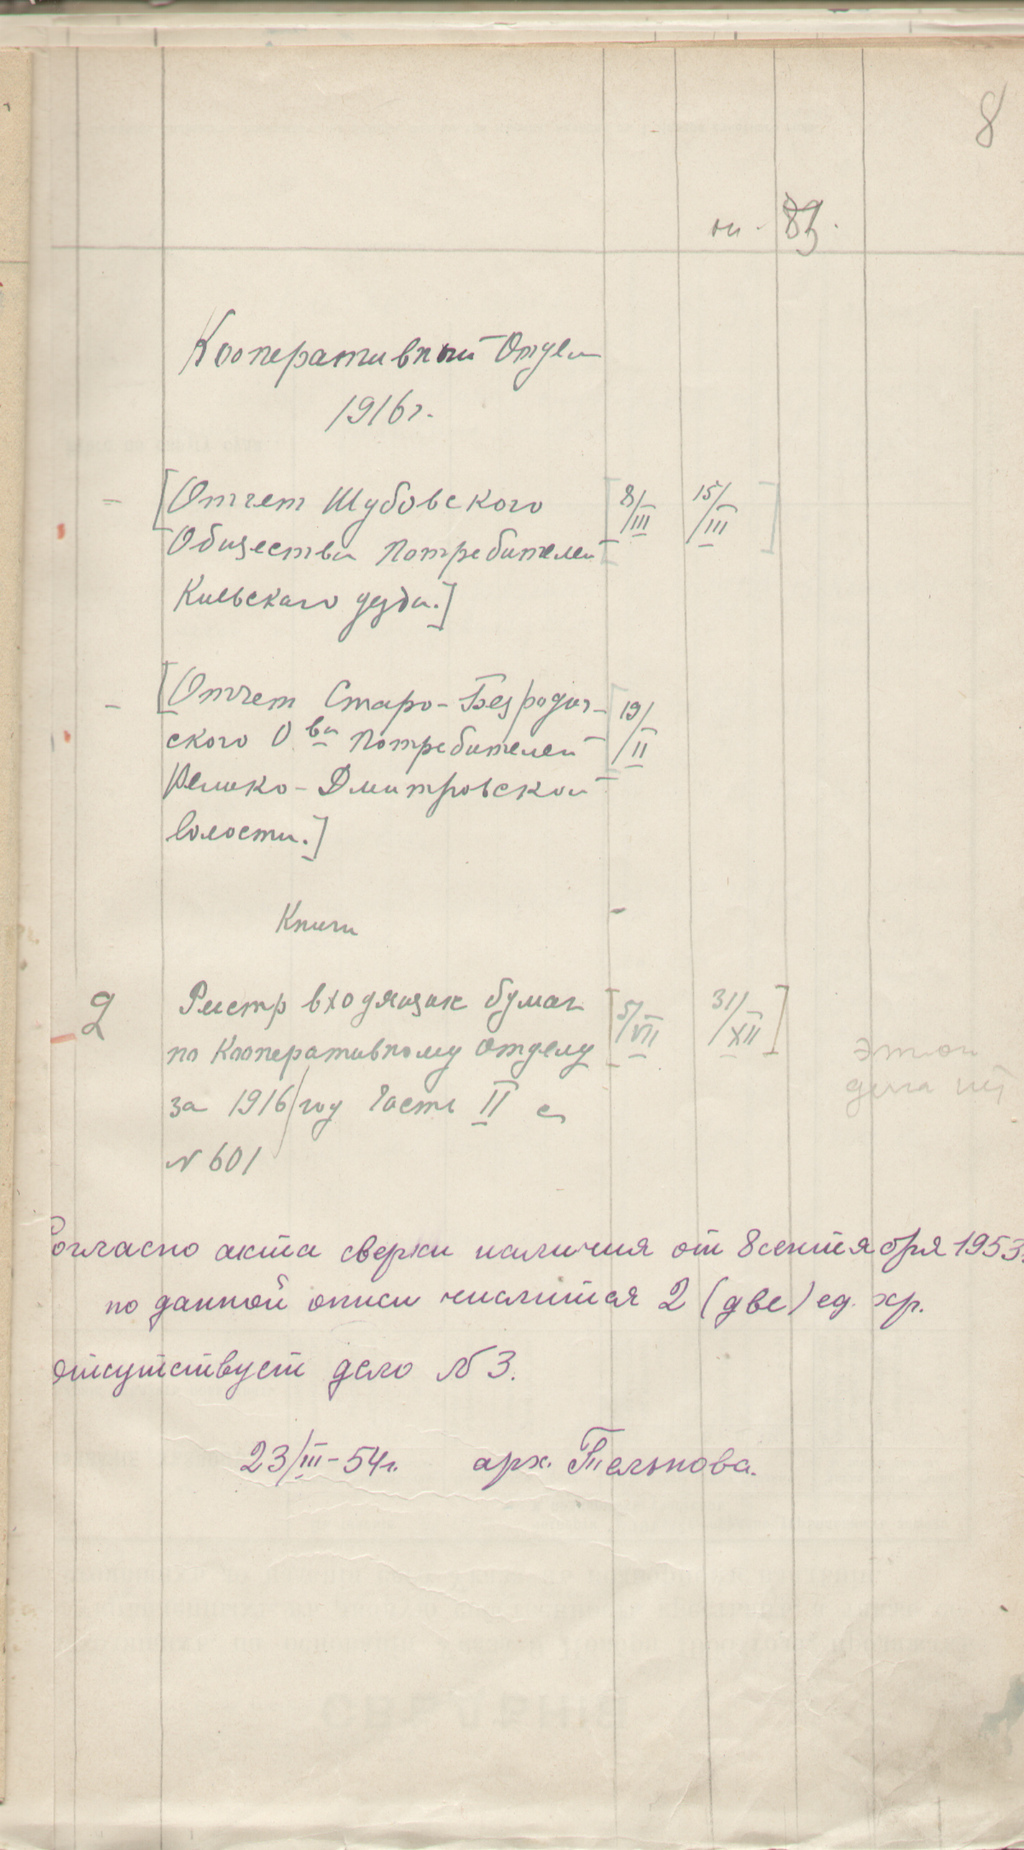 8
оп. 83.
Кооперативный Отдел
1916 г.
- [Отчет Шубовского 8/III 15/III
Общества Потребителей
Киевского уезда.]
- [Отчет Старо-Безрадич- 19/II
ского О ва Потребителей
Велико-Дмитровской
волости.]
Книги -
2 Реестр входящих бумаг [5/VII 31/XII]
по Кооперативному Отделу
за 1916 год Часть II с
N 601
этой
дела нет
Согласно акта сверки наличия от 8 сентября 1953
по данной описи числится 2 (две) ед. хр.
отсутствует дело № 3.
23/III-54 г. арх. Тельнова.